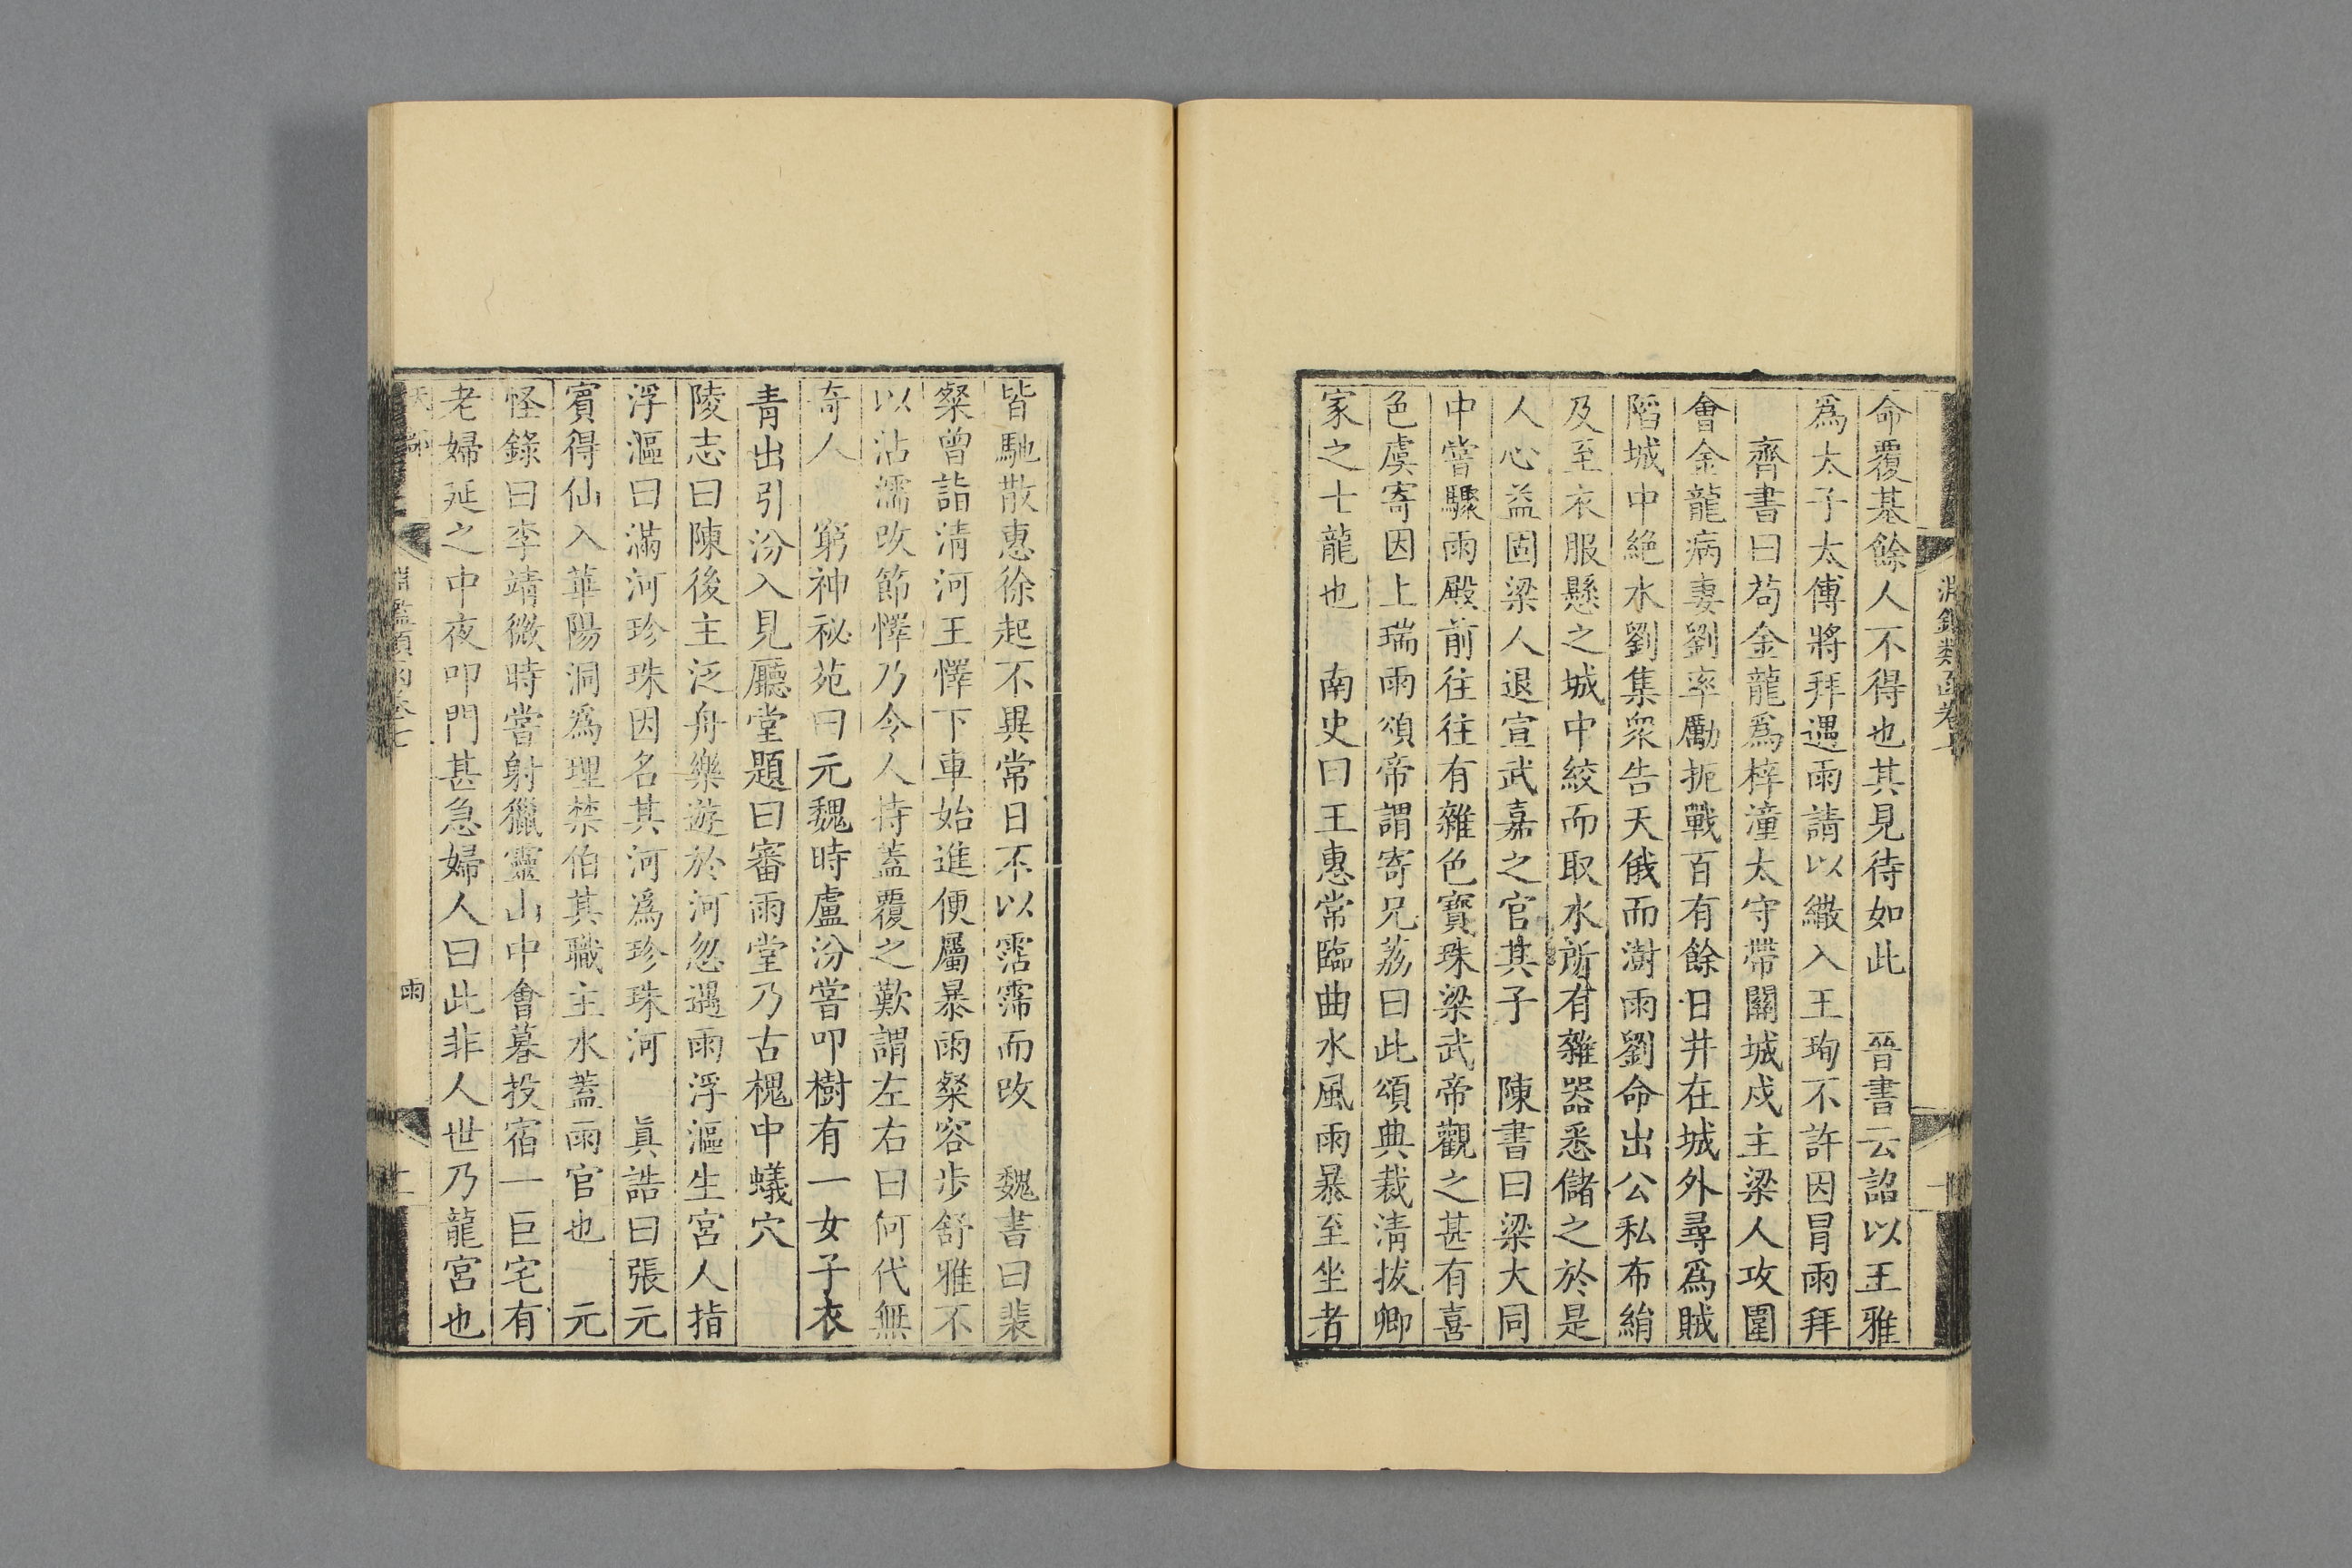 淵鑑類函卷七
命覆墓餘人不得也其見待如此　晉書云詔以王雅
爲太子太傅將拜遇雨請以繖入王珣不許因冒雨拜
齊書曰苟金龍爲梓潼太守帶關城戍主梁人攻圍
會金龍病妻劉率勵扼戰百有餘日井在城外尋爲賊
陷城中絶水劉集衆告天俄而澍雨劉命出公私布絹
及至衣服懸之城中絞而取水所有雜器悉儲之於是
人心益固梁人退宣武嘉之官其子　陳書曰梁大同
中嘗驟雨殿前往往有雜色寳珠梁武帝觀之甚有喜
色虞寄因上瑞雨頌帝謂寄兄荔曰此頌典裁清拔卿
家之士龍也　南史曰王惠常臨曲水風雨暴至坐者
皆馳散惠徐起不異常日不以霑霈而改　魏書曰裴
粲曾詣清河王懌下車始進便屬暴雨粲容步舒雅不
以沾濡改節懌乃令人持蓋覆之歎謂左右曰何代無
奇人　窮神祕苑曰元魏時盧汾嘗叩樹有一女子衣
青出引汾入見廳堂題曰審雨堂乃古槐中蟻穴
陵志曰陳後主泛舟樂遊於河忽遇雨浮漚生宮人指
浮漚曰滿河珍珠因名其河爲珍珠河　眞誥曰張元
賓得仙入華陽洞爲理禁伯其職主水蓋雨官也　元
怪錄曰李靖微時嘗射獵靈山中會暮投宿一巨宅有
老婦延之中夜叩門甚急婦人曰此非人世乃龍宮也
雨